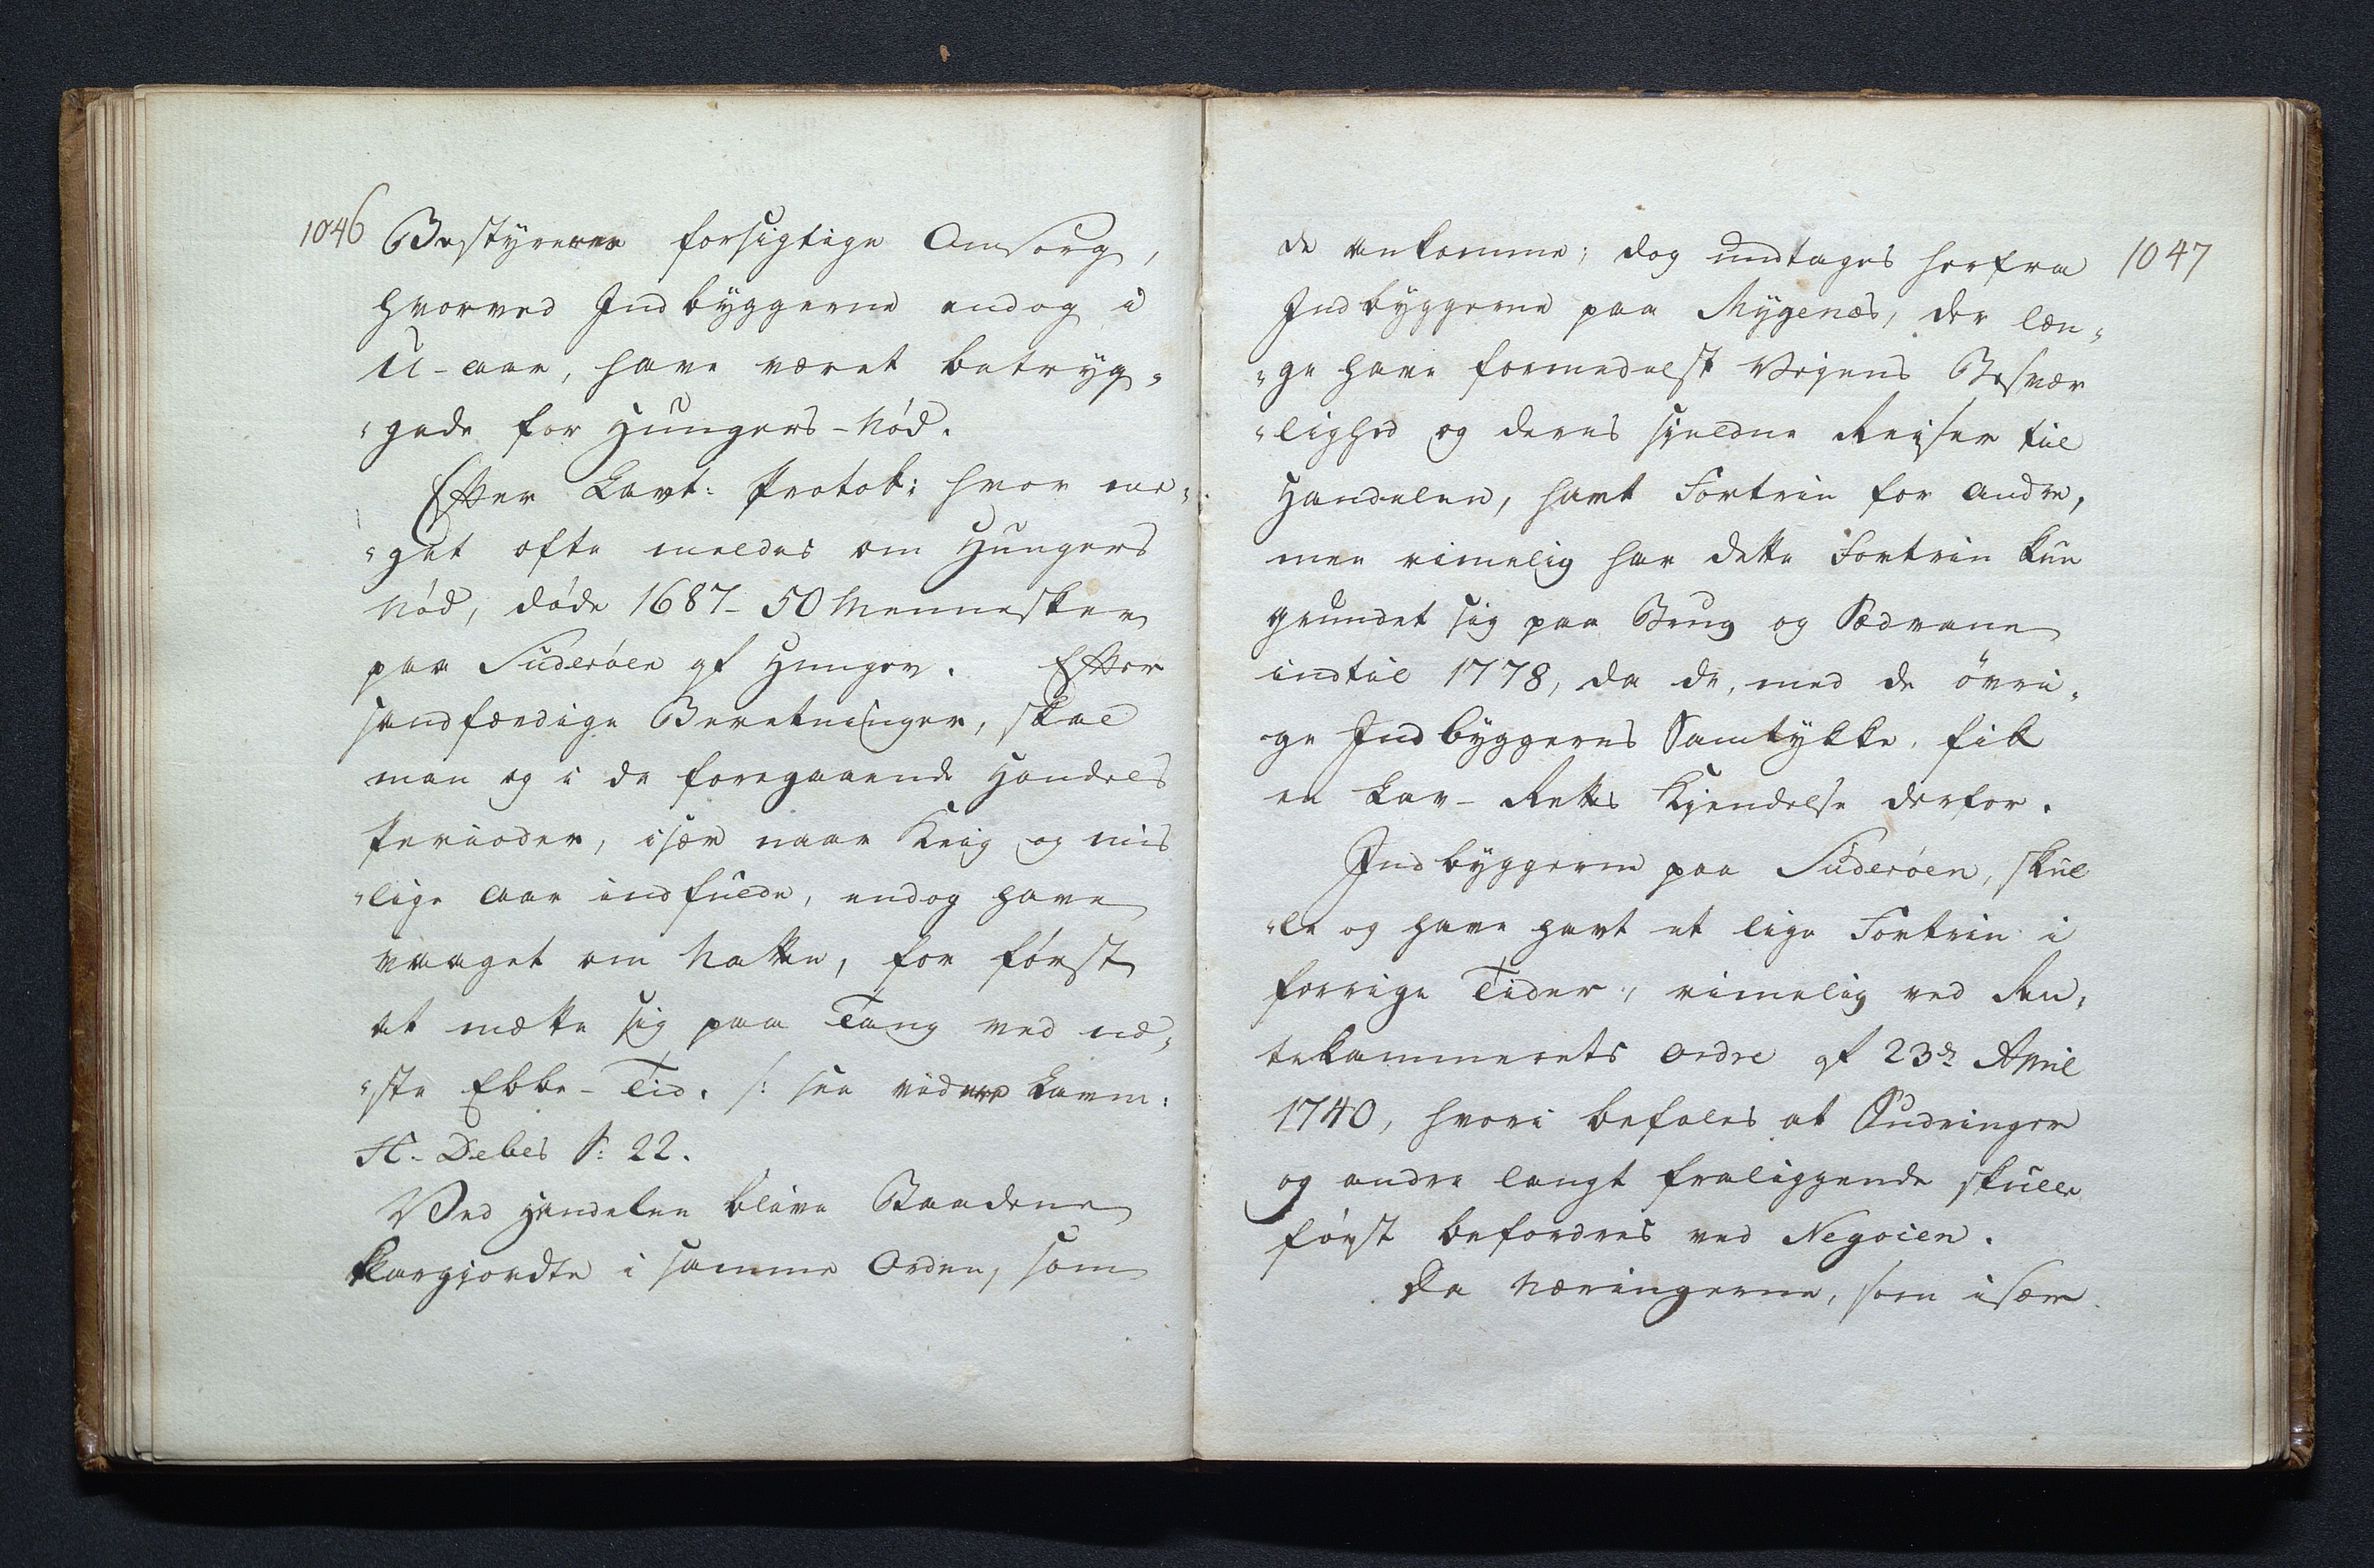 1046
Bestyrernes forsigtige Omsorg,
hvorved Indbyggerne endog i
U-aar, have været betryg„
„gede for Hungers-Nød.
Efter Lavt: Protok: hvor me„
„get ofte meldes om Hungers
Nød, døde 1687 - 50 Mennesker
paa Suderöen af Hunger. Efter
sandfærdige Beretninger, skal
man og i de foregaaende Handels
Perioder, især naar Krig og mis
„lige Aar indfuldt, endog have
vaaget om Natten, for først
at mætte sig paa Tang ved næ„
„ste Ebbe-Tid. /: see videre
H. Debes S: 22.
Ved Handelen blive Baadene
klargjordte i samme Orden, som
1047
de ankomme; dog undtages herfra
Indbyggerne paa Mygenæs, der læn„
„ge have formedelst Vejens Besvær
„lighed og deres sjeldne Reiser til
Handelen, havt Fortrin for andre,
men rimelig har dette Fortrin kun
grundet sig paa Brug og Sædvane
indtil 1778, da de, med de övri„
ge Indbyggeres Samtykke, fik
en Lav-Retts Kjendelse derfor.
Indbyggerne paa Suderöen, skul
„le og have havt et lige Fortrin i
forrige Tider, rimelig ved Ren„
tekammerets Ordre af 23de April
1740, hvori befales at Sudringer
og andre langt fraliggende skulle
først befordres ved Negocien.
Da Næringerne, som især